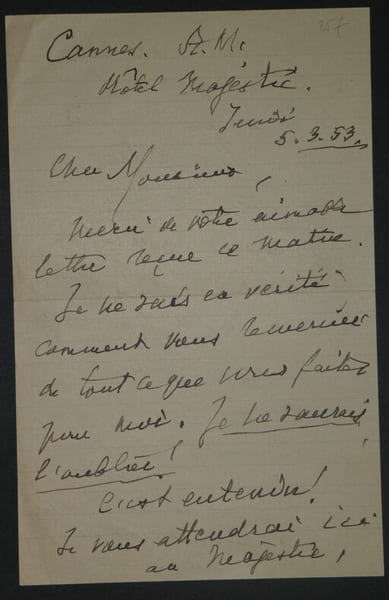 25f
Cannes. A.M.
Hôtel Majéstic.
Jeudi
5.3.53.
Cher Monsieur,
Merci de votre aimable
lettre reçue ce matin.
Je ne sais en vérité
comment vous remercier
de tout ce que vous faites
pour moi. Je ne saurais
l'oublier!
C'est entendu!
Je vous attendrai ici
au Majéstic,